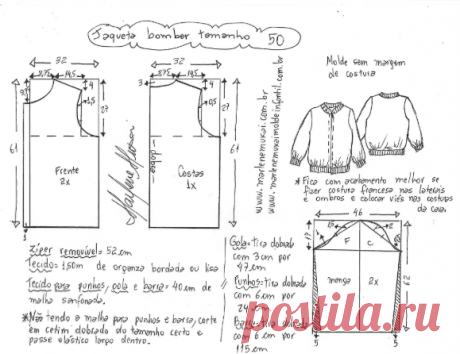 Jaqueta bomber tamanho 50
Molde sem margem
de costura
32
8,75 14,5
4
9,5
1,5
27
61
Frente
2x
1
32
8,75 14,5
3
4
1,5
27
61
dobra
Costas
1x
Marlene Mukai
www.marlenemukai.com.br
www.marlenemukaimoldeinfantil.com.br
*Fica com acabamento melhor se
fizer costura francesa nas laterais
e ombros e colocar viés nas costuras
da cava.
46
17
F C
manga 2x
62
5 5
Zíper removível = 52cm
Tecido: 1,50m de organza bordada ou lisa
Tecido para punhos, gola e barra = 40cm de
malha sanfonada.
*Não tendo a malha para punhos e barra, corte
em cetim dobrado do tamanho certo e
passe elástico largo dentro.
Gola = tira dobrada
com 3cm por
47cm
Punhos = tira dobrada
com 6cm por
Barra = tira
com 6cm por
115cm